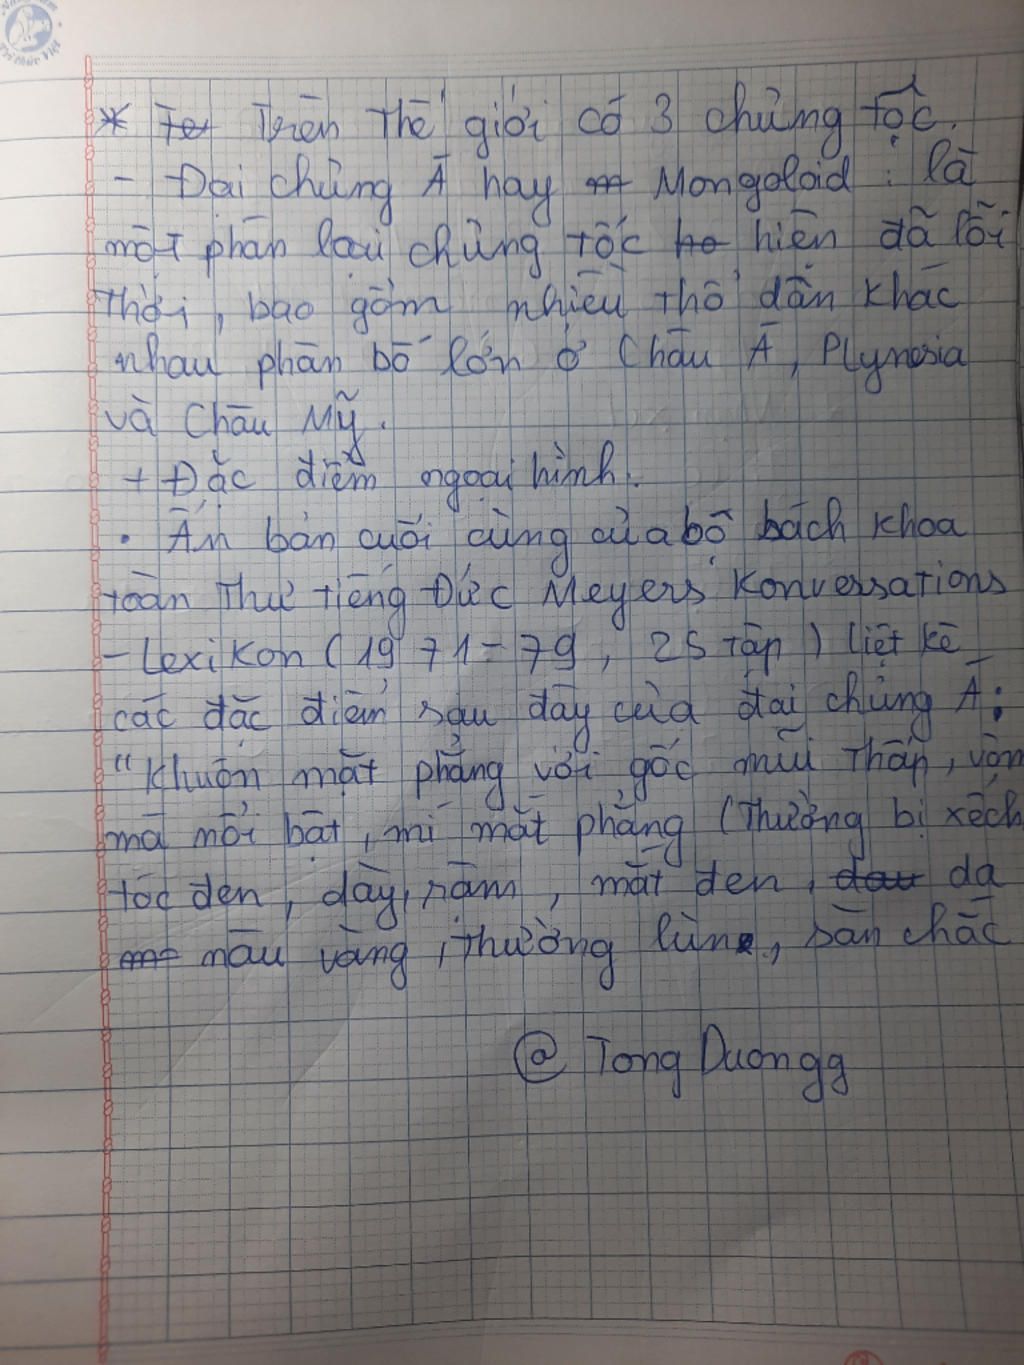 Tri thức Việt
* Trên thế giới có 3 chủng tộc.
- Đại chủng Á hay Mongoloid : là
một phân loại chủng tộc hiện đã lỗi
thời, bao gồm nhiều thổ dân khác
nhau phân bố lớn ở Châu Á, Plynesia
và Châu Mỹ.
+ Đặc điểm ngoại hình.
• Ấn bản cuối cùng của bộ bách khoa
toàn Thư tiếng Đức Meyers Konversations
- Lexikon ( 1971 - 79, 25 tập ) liệt kê
các đặc điểm sau đây của đại chủng Á:
"Khuôn mặt phẳng với gốc mũi thấp, vòm
má nổi bật, mí mắt phẳng (thường bị xếch
tóc đen, dày, rậm, mắt đen, da
màu vàng, thường lùn, sần chắc
@ Tong Duongg